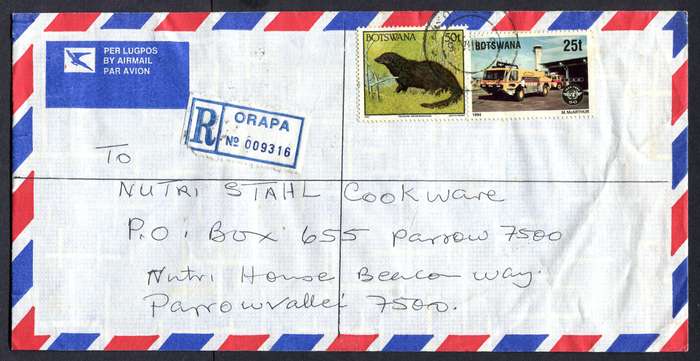 PER LUGPOS
BY AIRMAIL
PAR AVION
BOTSWANA 50t
BOTSWANA 25t
1994 M. McARTHUR
R ORAPA
No 009316
TO
NUTRI STAHL Cookware
P.O. Box 655 Parrow 7500
Nutri House Beacon way.
Parrowvallei 7500.